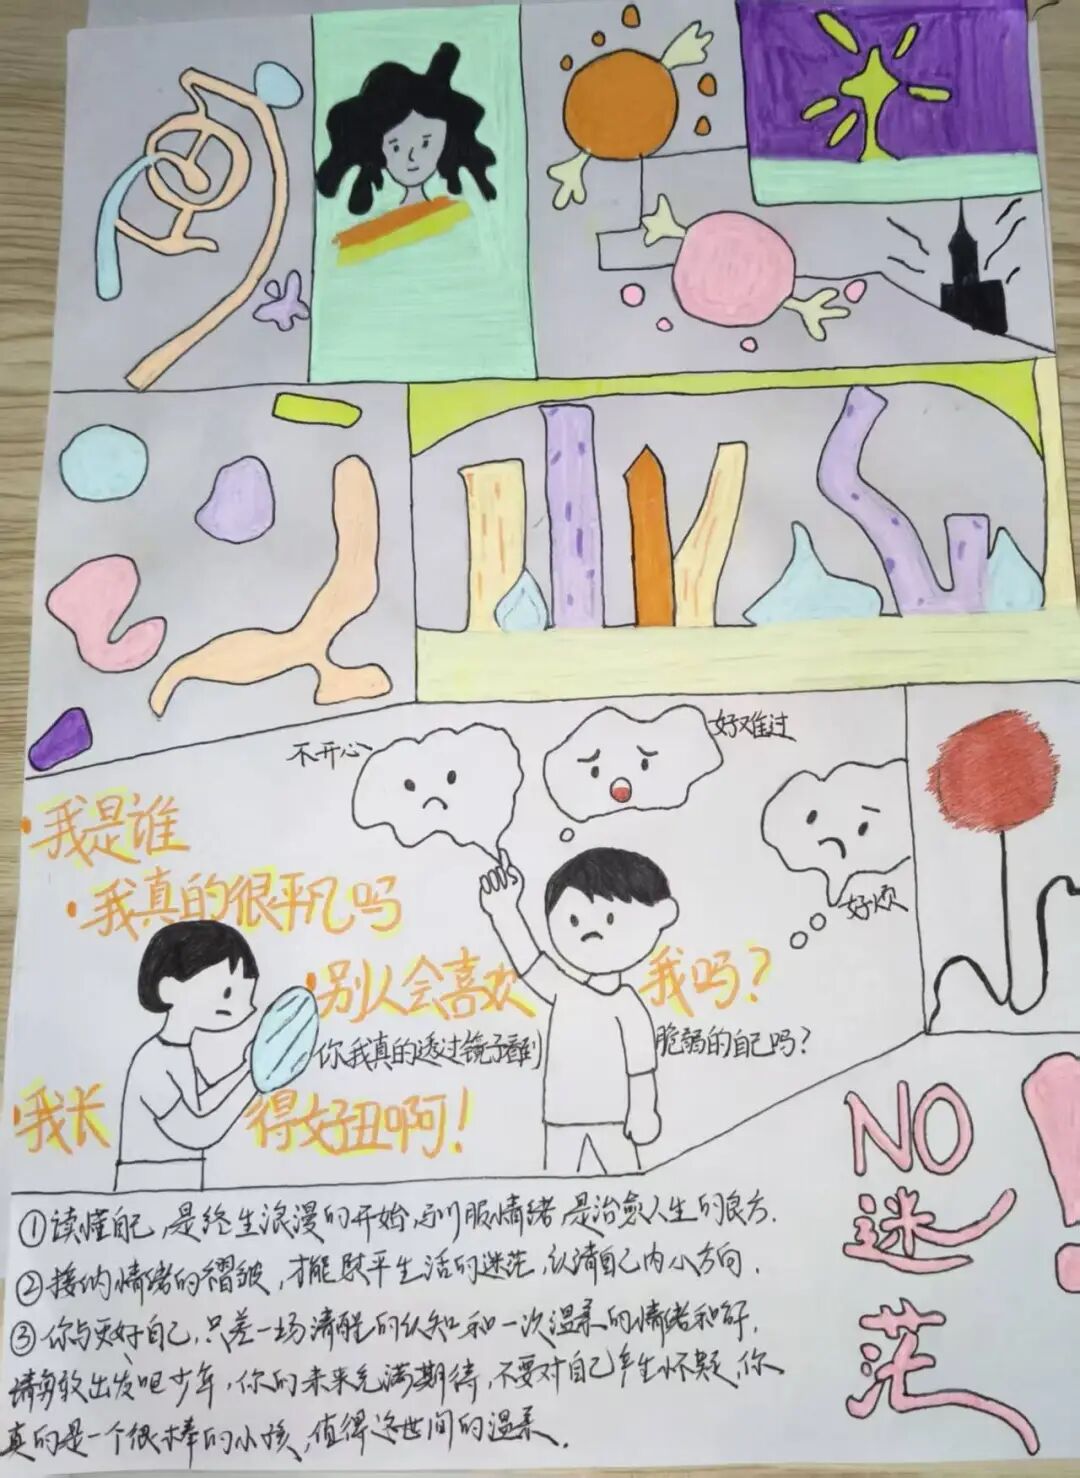 不开心
好难过
好烦
我是谁
我真的很平凡吗
别人会喜欢我吗？
你我真的透过镜子看到脆弱的自己吗？
我长得好丑啊！
NO
迷
茫
！
①读懂自己，是终生浪漫的开始，驯服情绪是治愈人生的良方.
②接纳情绪的褶皱，才能熨平生活的迷茫，认清自己内心方向.
③你与更好自己，只差一场清醒的认知和一次温柔的情绪和解.
请勇敢出发吧少年，你的未来充满期待，不要对自己产生怀疑，你
真的是一个很棒的小孩，值得这世间的温柔.